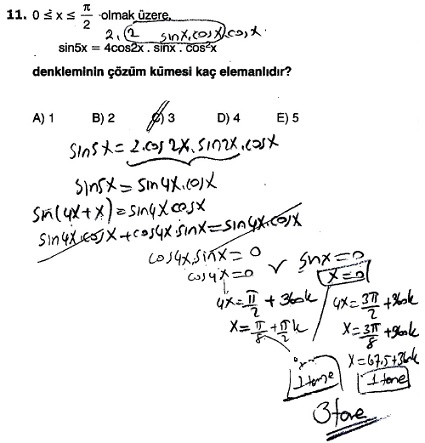 11. 0 ≤ x ≤ π/2 olmak üzere,
2. (2 sinx.cosx).cosx.
sin5x = 4cos2x . sinx . cos²x
denkleminin çözüm kümesi kaç elemanlıdır?
A) 1 B) 2 C) 3 D) 4 E) 5
sin5x = 2.cos2x.sin2x.cosx
sin5x = sin4x.cosx
sin(4x+x) = sin4x cosx
sin4x.cosx + cos4x sinx = sin4x.cosx
cos4x.sinx = 0
cos4x = 0 ∨ sinx = 0
x = 0
4x = π/2 + 360k
x = π/8 + π/2 k
1 tane
4x = 3π/2 + 360k
x = 3π/8 + 90k
x = 67,5 + 90k
1 tane
3 tane